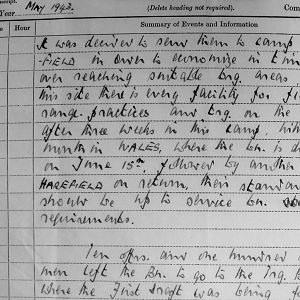 Year May 1943.
(Delete heading not required).
Com
Hour
Summary of Events and Information
it was decided to send them to camp
-FIELD in order to economise in tim
over reaching suitable trg. areas
this site there is every facility for fi
range practices and trg. on the
after three weeks in this camp,
month in WALES, where the Bn. is d
on June 15th, followed by another
HAREFIELD on return, their standar
should be up to service Bn.
requirements.
Ten offrs. and one hundred
men left the Bn. to go to the Trg.
where the first draft was being f